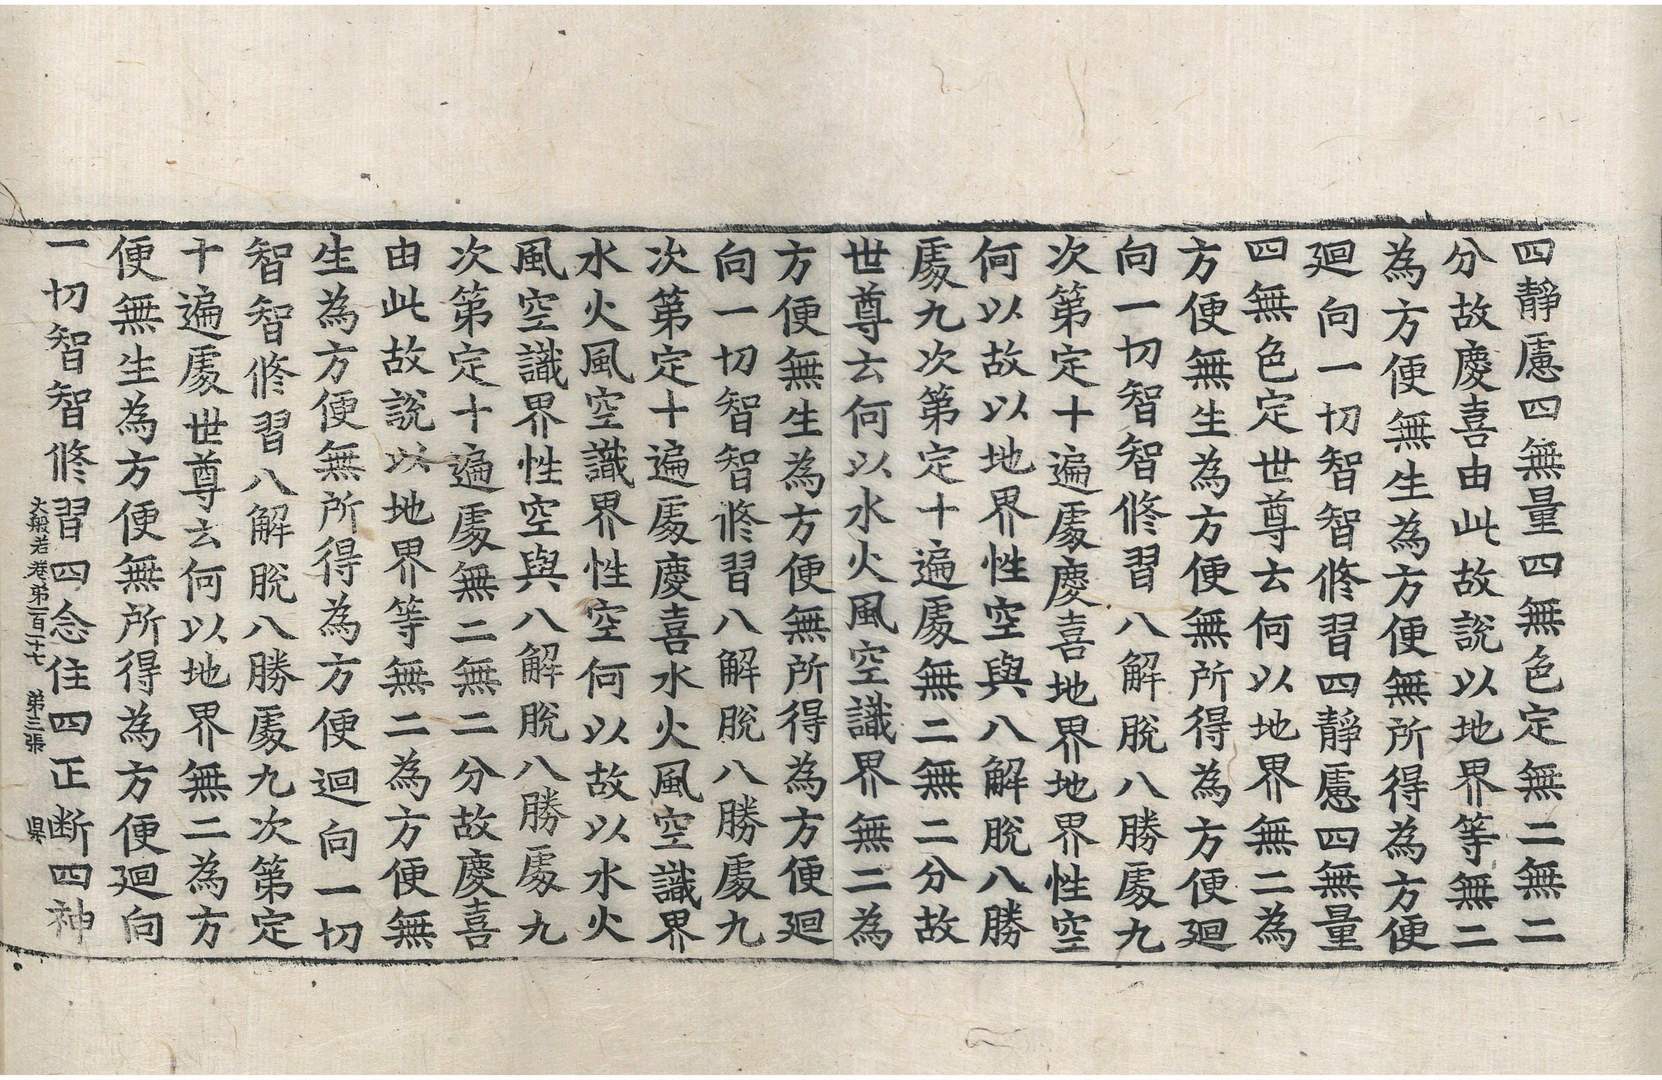 四靜慮四無量四無色定無二無二
分故慶喜由此故說以地界等無二
為方便無生為方便無所得為方便
廻向一切智智修習四靜慮四無量
四無色定世尊云何以地界無二為
方便無生為方便無所得為方便廻
向一切智智修習八解脫八勝處九
次第定十遍處慶喜地界地界性空
何以故以地界性空與八解脫八勝
處九次第定十遍處無二無二分故
世尊云何以水火風空識界無二為
方便無生為方便無所得為方便廻
向一切智智修習八解脫八勝處九
次第定十遍處慶喜水火風空識界
水火風空識界性空何以故以水火
風空識界性空與八解脫八勝處九
次第定十遍處無二無二分故慶喜
由此故說以地界等無二為方便無
生為方便無所得為方便迴向一切
智智修習八解脫八勝處九次第定
十遍處世尊云何以地界無二為方
便無生為方便無所得為方便廻向
一切智智修習四念住四正断四神
大般若卷第一百二十七 第三張 㫤